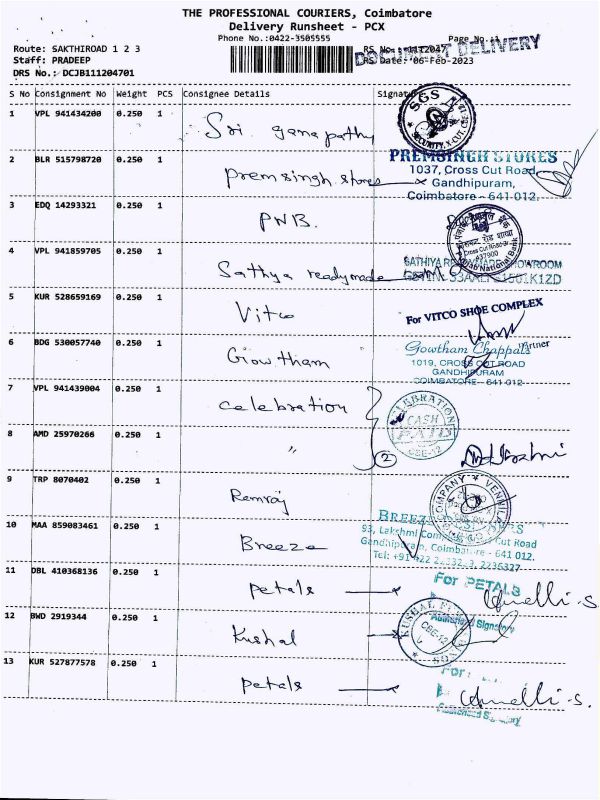 THE PROFESSIONAL COURIERS, Coimbatore
Delivery Runsheet - PCX
Phone No.:0422-3505555
Page No.:1
Route: SAKTHIROAD 1 2 3
DOCUMENT DELIVERY
Staff: PRADEEP
RS Date: 06-Feb-2023
DRS No.: DCJB111204701
S No Consignment No Weight PCS Consignee Details Signat
1 VPL 941434200 0.250 1 Sri ganapathy
SGS
SECURITY, X-CUT, CBE
2 BLR 515798720 0.250 1 premsingh stores
PREMSINGH STORES
1037, Cross Cut Road,
Gandhipuram,
Coimbatore - 641 012.
3 EDQ 14293321 0.250 1 PNB.
Cross Cut Road
National Bank
4 VPL 941859705 0.250 1 Sathya readymade
SATHYA READYMADE SHOWROOM
5 KUR 528659169 0.250 1 Vitco
For VITCO SHOE COMPLEX
Partner
6 BDG 530057740 0.250 1 Gowtham
Gowtham Chappals
1019, CROSS CUT ROAD
GANDHIPURAM
COIMBATORE - 641 012
7 VPL 941439004 0.250 1 celebration
CELEBRATION
CASH
PAID
CBE-12
8 AMD 25970266 0.250 1 "
2
9 TRP 8070402 0.250 1 Ramraj
COMPANY * VENNILA
10 MAA 859083461 0.250 1 Breeze
BREEZE
93, Lakshmi Cut Road
Gandhipuram, Coimbatore - 641 012.
11 DBL 410368136 0.250 1 Petals
For PETALS
Authorised Signatory
12 BWD 2919344 0.250 1 Kushal
KUSHAL
CBE-12
13 KUR 527877578 0.250 1 Petals
For
Authorised Signatory